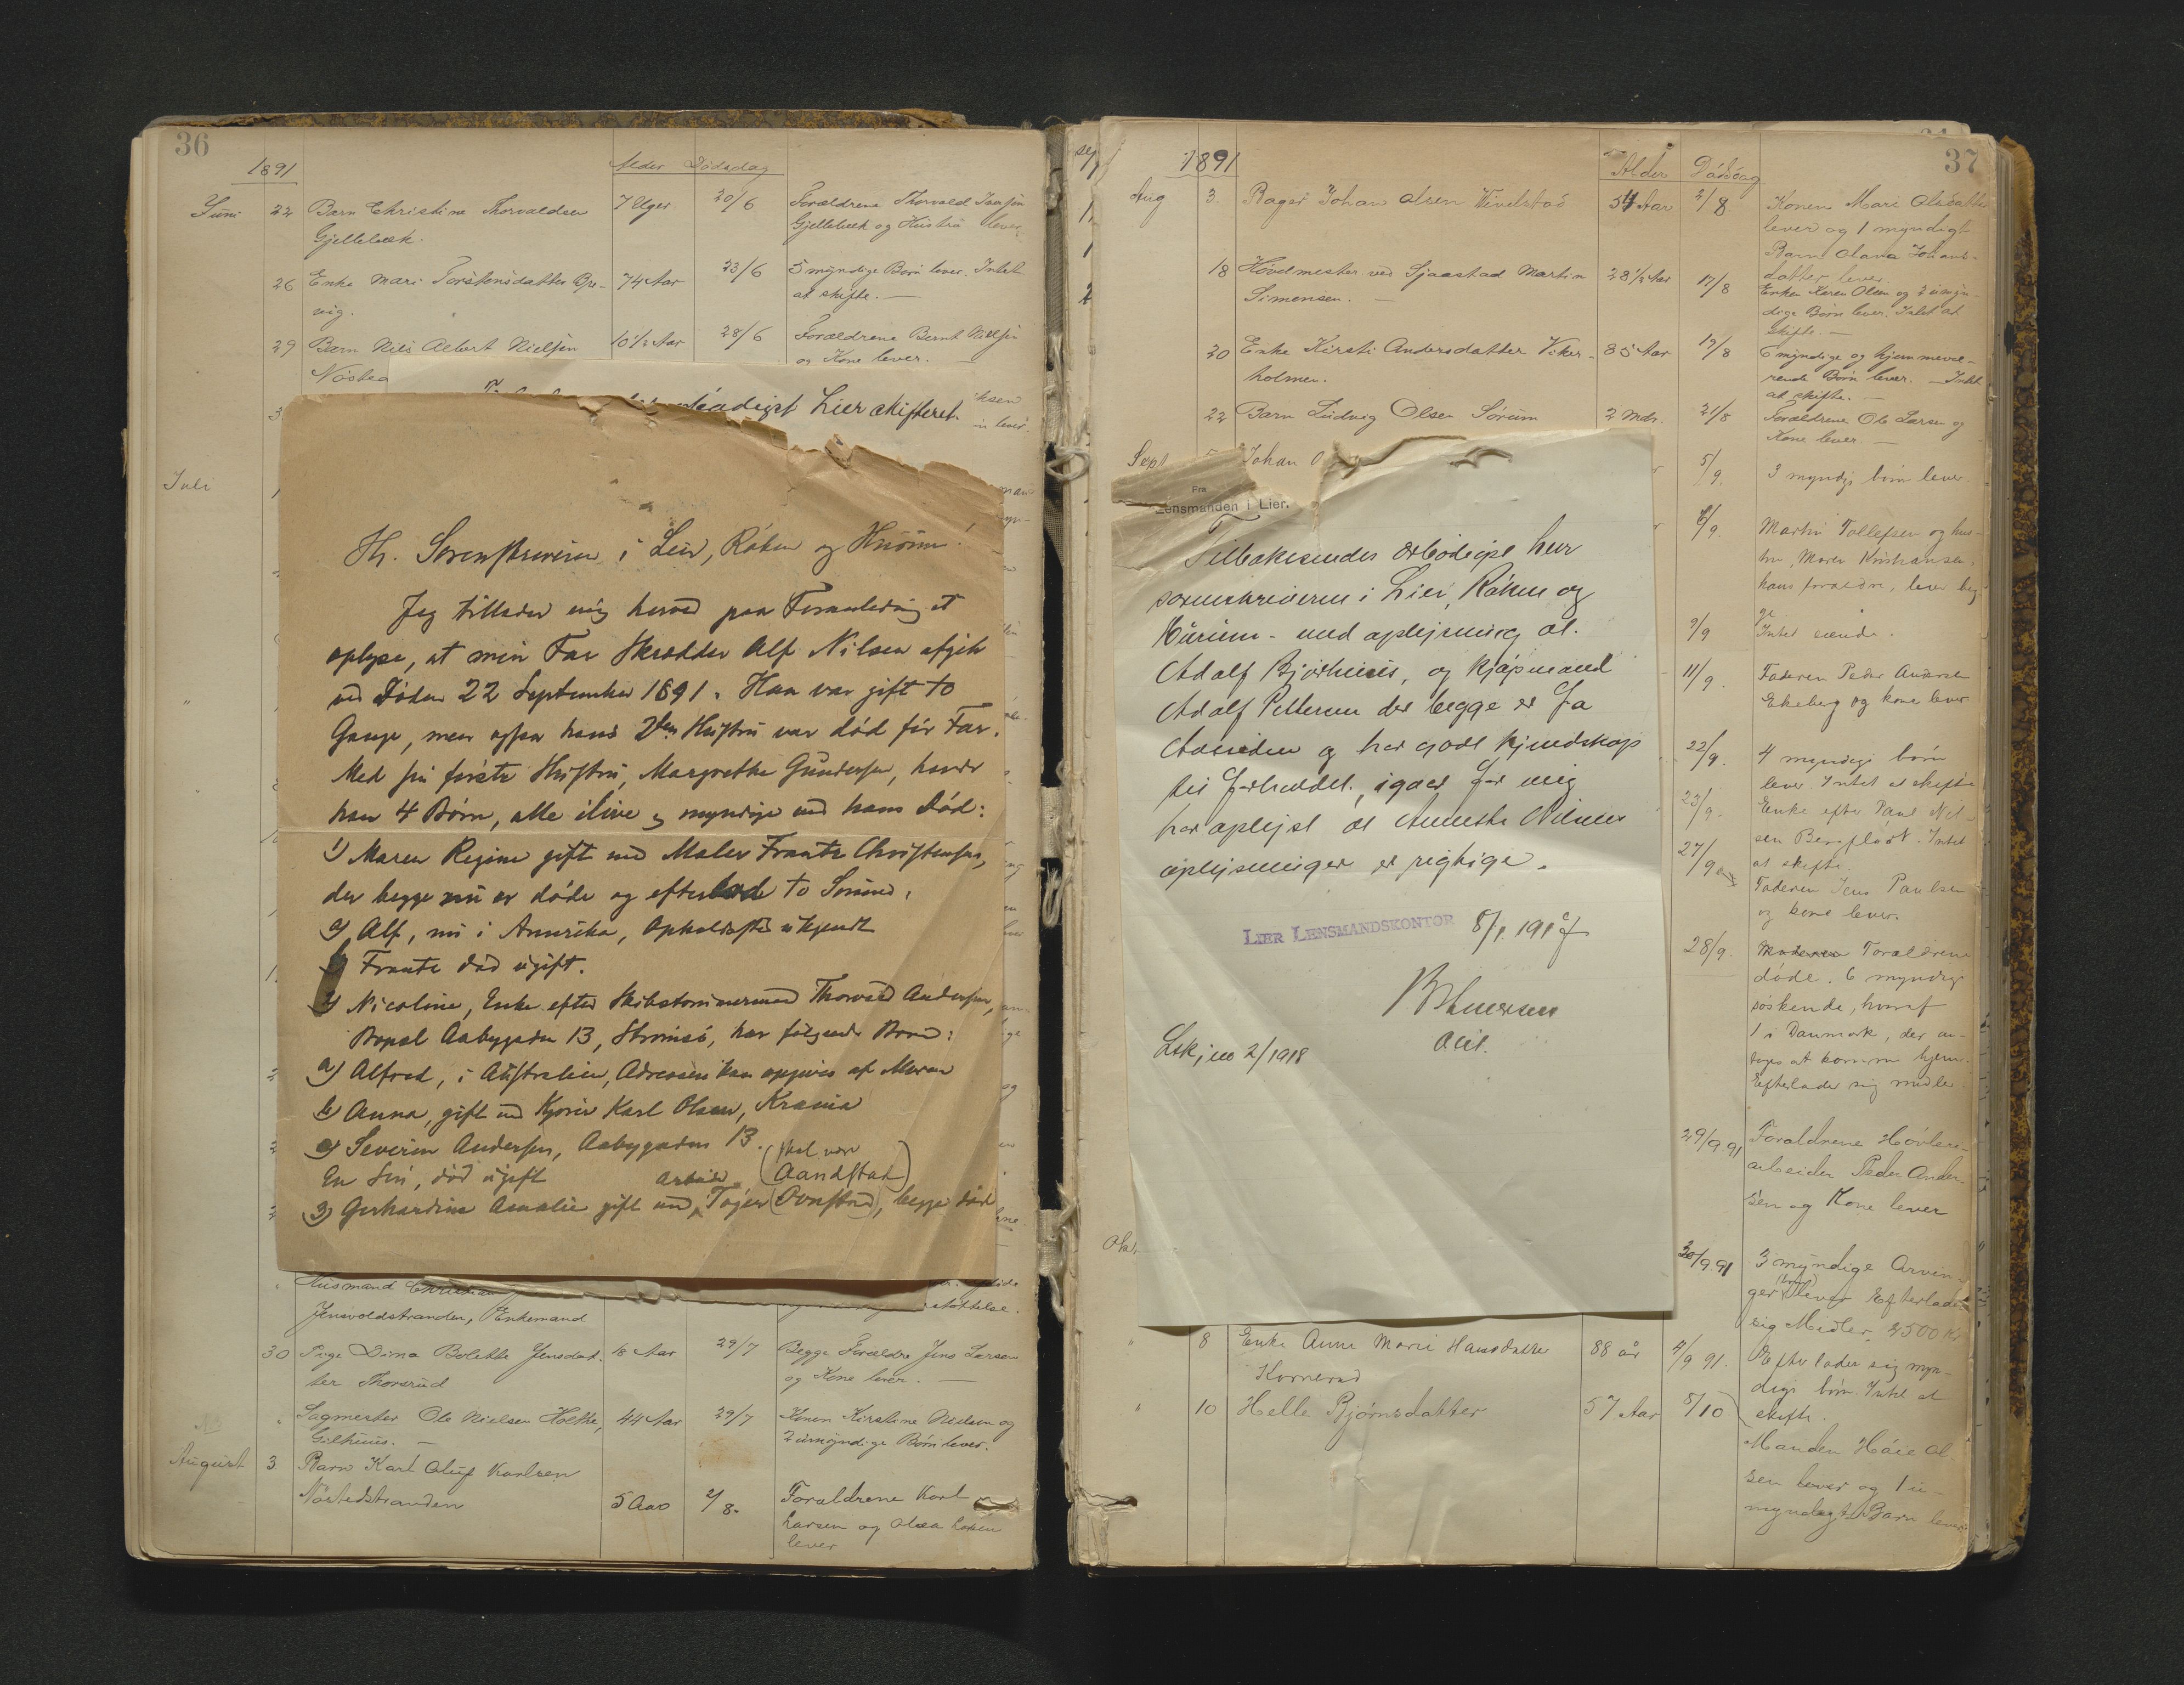 36
1891
Alder Dødsdag
Juni 22 Barn Christine Thorvaldsen 7 Uger 20/6 Forældrene Thorvald
Gjellebæk. Gjellebæk og Hustru lever
26 Enke Mari Torstensdatter Bre- 74 Aar 23/6 5 myndige Børn lever. Intet
vig. at skifte. —
29 Barn Nils Albert Nielsen 10 1/2 Aar 28/6 Forældrene Bernt Nielsen
og Kone lever.
Lier skifteret.
Juli
Hr. Sorenskriveren i Lier, Røken og Hurum!
Jeg tillader mig herved paa Foranledning at
oplyse, at min Far Skrædder Alf Nilsen afgik
ved Døden 22 September 1891. Han var gift to
Gange, men ogsaa hans 2den Hustru var død før Far.
Med sin første Hustru, Margrethe Gundersen, havde
han 4 Børn, alle ilive og myndige ved hans Død:
1) Maren Regine gift med Maler Frantz Christensen,
der begge nu er døde og efterlod to Sønner,
a) Alf, nu i Amerika, Opholdssted ukjendt
b) Frantz død ugift.
2) Nicoline, Enke efter Skibstømmermand Thorvald Andersen,
Bopæl Aabygaden 13, Strømsø, har følgende Børn:
a) Alfred, i Australien, Adressen kan opgives af Moren
b) Anna, gift med Karl Olsen, Krania
c) Severin Andersen, Aabygaden 13.
En Søn, død ugift
(skal være
Aandstad)
Arbeider
3) Gerhardine Amalie gift med Tøger, begge død
Husmand Christian
Jensvoldstranden, Enkemand
30 Pige Dina Bolette Jensdat- 18 Aar 29/7 Begge Forældre Jens Larsen
ter Thorsrud og Kone lever. —
Sagmester Ole Nielsen Holtte, 44 Aar 29/7 Konen Kirstine Nielsen og
Gilhuus. — 2 umyndige Børn lever.
August 3 Barn Karl Oluf Karlsen
Nøstedstranden 5 Aar 2/8. Forældrene Karl
Larsen og Olea Larsen
lever
37
1891
Alder Dødsdag
Aug 3. Bager Johan Olsen Vivelstad 54 Aar 2/8 Konen Mari Olsdatter
lever og 1 myndigt
Barn Olava Johans-
datter lever.
18 Høvelmester ved Sjaastad Martin 28 1/2 Aar 17/8 Enken Karen Olsen og 2 umyn-
Simensen. — dige Børn lever. Intet at
skifte. —
20 Enke Kirsti Andersdatter Viker- 85 Aar 19/8 6 myndige og hjemmevæ-
holmen. rende Børn lever. — Intet
at skifte. —
22 Barn Ludvig Olsen Sørum 2 Mdr. 21/8 Forældrene Ole Larsen og
Kone lever. —
Sept Johan 5/9. 3 myndige børn lever
Fra
Lensmanden i Lier.
Tilbakesendes ærbødigst herr
sorenskriveren i Lier, Røken og
Hurum - med oplysning at.
Adolf, og kjøpmand
Adolf Pettersen der begge er fra
Aassiden og har godt kjendskap
til forholdet, igaar for mig
har oplyst at Annette Nilsens
oplysninger er rigtige.
LIER LENSMANDSKONTOR 8/1. 1918
2/1918
9. Martin Tollefsen og hus-
tru, Maren Kristiansen,
hans forældre, lever beg-
ge
9/9 Intet eiende.
11/9. Faderen Peder Andersen
Ekeberg og kone lever
22/9. 4 myndige børn
lever. Intet at skifte
23/9. Enke efter Paul Nil-
sen. Intet
at skifte.
27/9 Faderen Jens Paulsen
og kone lever.
28/9. Forældrene
døde. 6 myndige
søskende, hvoraf
1 i Danmark, der an-
tages at komme hjem.
Efterlader sig midler
29/9.91 Forældrene Høvleri-
arbeider Peder Ander-
sen og Kone lever
Okt.
30/9 91 3 myndige Arvin-
ger lever Efterlader
sig Midler, 2500 Kr
8 Enke Anne Marie Hansdatter 88 år 4/9 91. Efterlader sig myn-
Kornerud dige børn. Intet at
skifte.
10 Helle Bjørnsdatter 57 Aar 8/10
Manden Ol-
sen lever og 1 u-
myndigt Barn lever